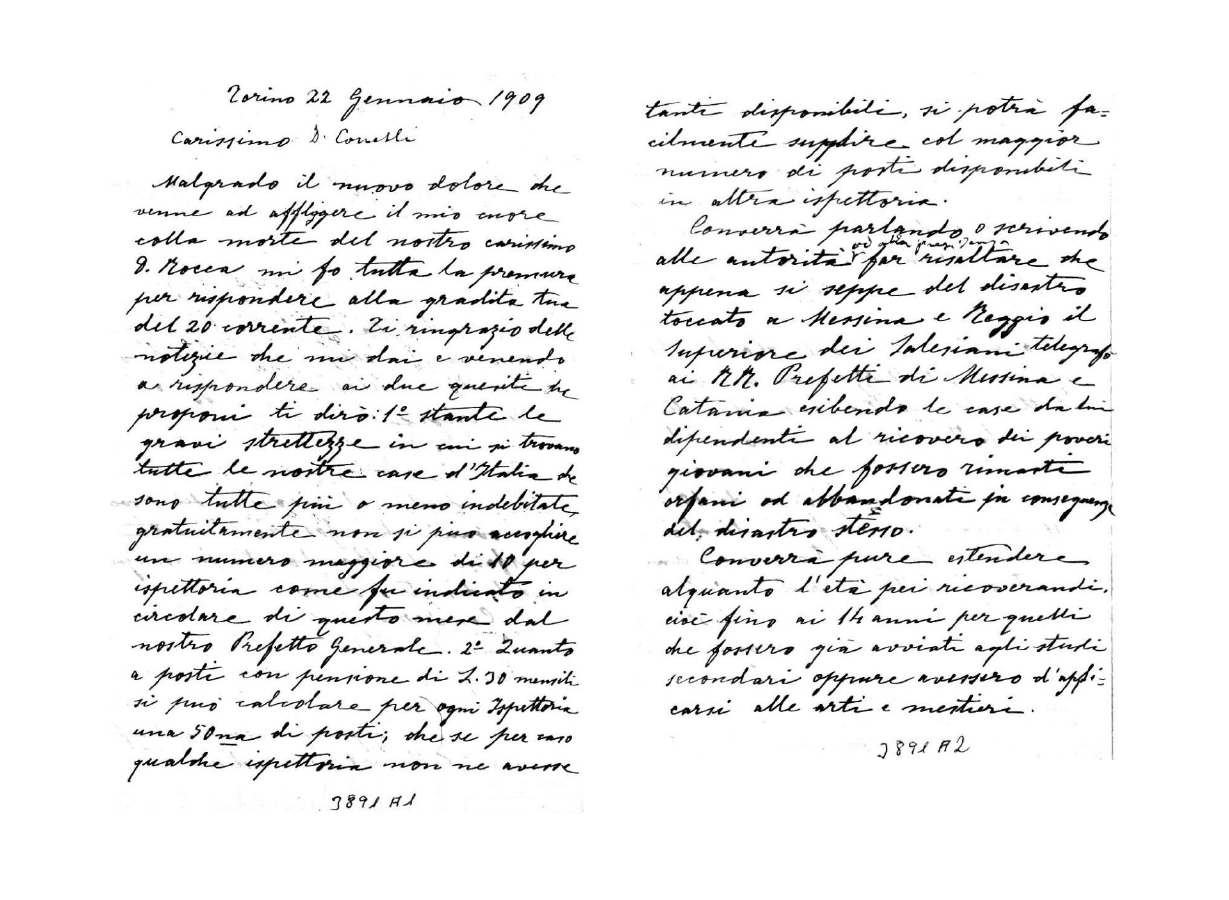 Torino 22 Gennaio 1909
Carissimo D. Conelli
Malgrado il nuovo dolore che
venne ad affliggere il mio cuore
colla morte del nostro carissimo
D. Rocca mi fo tutta la premura
per rispondere alla gradita tua
del 20 corrente. Ti ringrazio delle
notizie che mi dai e venendo
a rispondere ai due quesiti che
proponi ti dirò: 1º stante le
gravi strettezze in cui si trovano
tutte le nostre case d'Italia che
sono tutte più o meno indebitate,
gratuitamente non si può accogliere
un numero maggiore di 10 per
ispettoria come fu indicato in
circolare di questo mese dal
nostro Prefetto Generale. 2º Quanto
a posti con pensione di L. 30 mensili
si può calcolare per ogni Ispettoria
una 50na di posti; che se per caso
qualche ispettoria non ne avesse
3891 A1
tanti disponibili, si potrà fa=
cilmente supplire col maggior
numero di posti disponibili
in altra ispettoria.
Converrà parlando o scrivendo
od alla presidenza
alle autorità far risaltare che
appena si seppe del disastro
toccato a Messina e Reggio il
Superiore dei Salesiani telegrafò
ai RR. Prefetti di Messina e
Catania esibendo le case da lui
dipendenti al ricovero dei poveri
giovani che fossero rimasti
orfani od abbandonati in conseguenza
del disastro stesso.
Converrà pure estendere
alquanto l'età pei ricoverandi,
cioè fino ai 14 anni per quelli
che fossero già avviati agli studi
secondari oppure avessero d'appli=
carsi alle arti e mestieri.
3891 A2